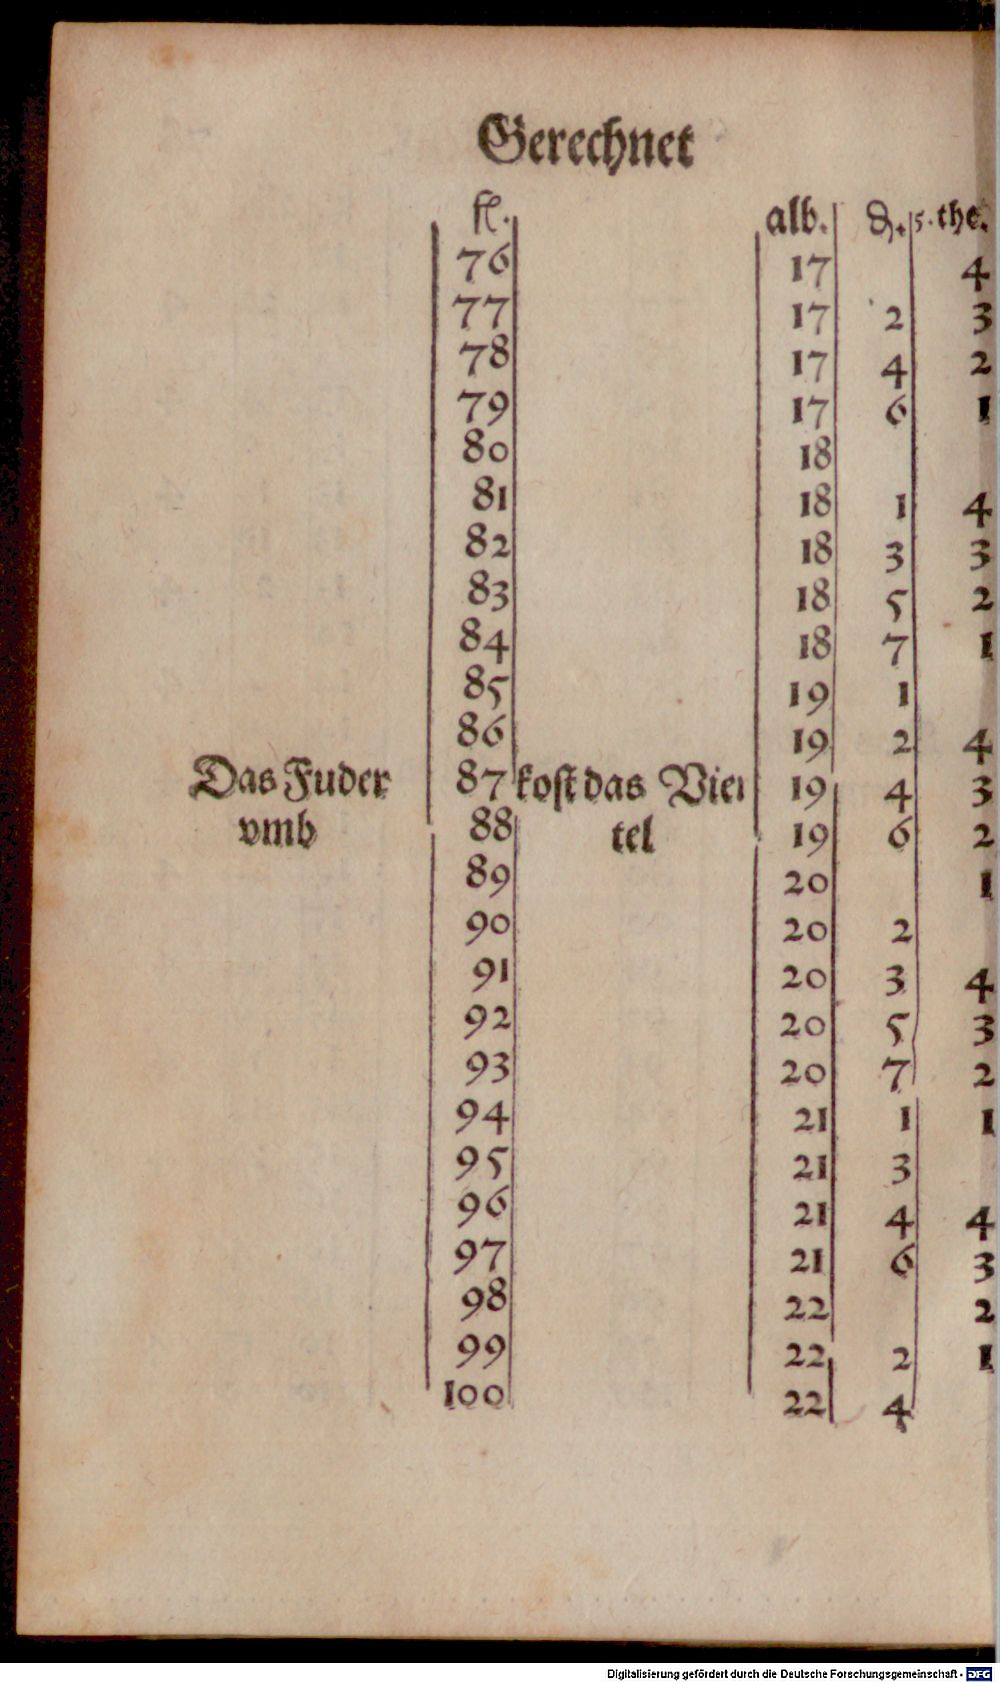 Gerechnet
fl. alb. ₰. 5. the.
76 17 4
77 17 2 3
78 17 4 2
79 17 6 1
80 18
81 18 1 4
82 18 3 3
83 18 5 2
84 18 7 1
85 19 1
86 19 2 4
Das Fuder 87 kost das Vier 19 4 3
vmb 88 tel 19 6 2
89 20 1
90 20 2
91 20 3 4
92 20 5 3
93 20 7 2
94 21 1 1
95 21 3
96 21 4 4
97 21 6 3
98 22 2
99 22 2 1
100 22 4
Digitalisierung gefördert durch die Deutsche Forschungsgemeinschaft - DFG